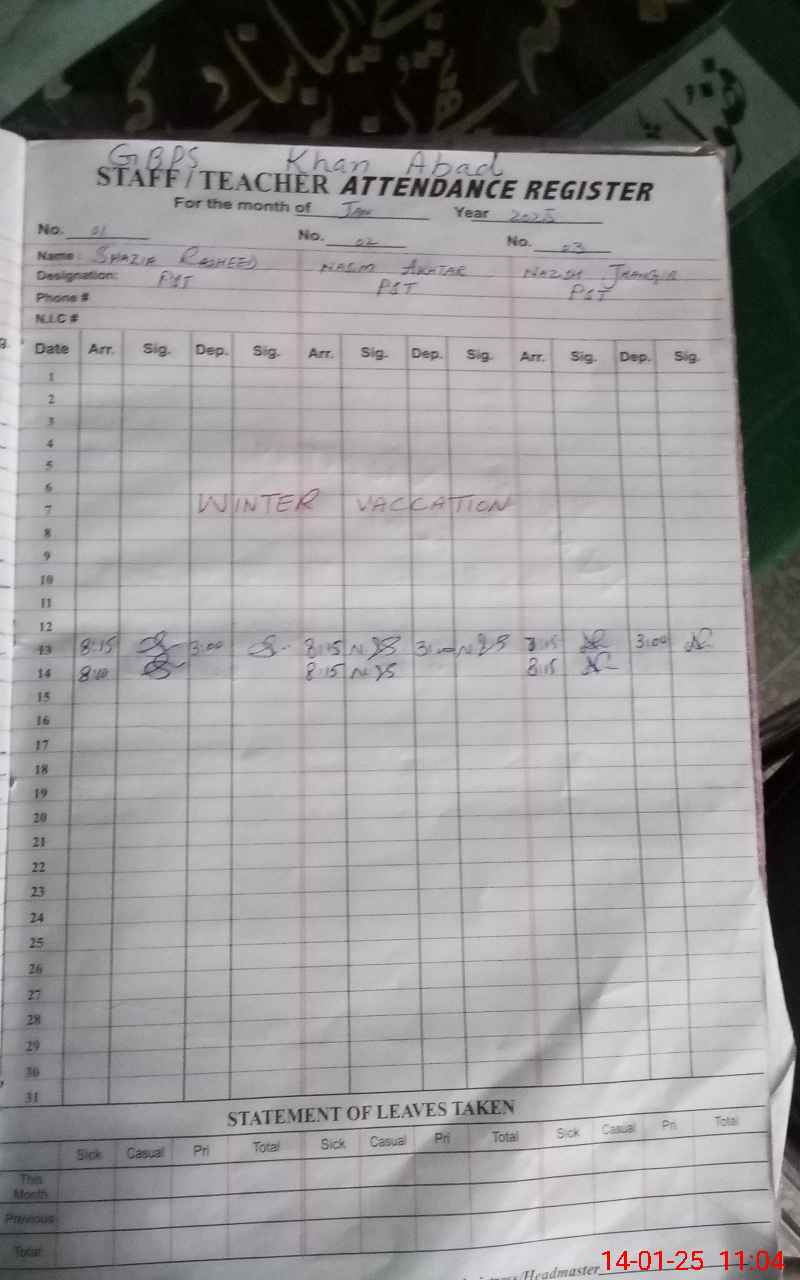 GBPS Khan Abad
STAFF / TEACHER ATTENDANCE REGISTER
For the month of Jan Year 2025
No. 01 No. 02 No. 03
Name: SHAZIA RASHEED NASIM AKHTAR NAZISH JHANGIR
Designation: PST PST PST
Phone #
N.I.C #
Date Arr. Sig. Dep. Sig. Arr. Sig. Dep. Sig. Arr. Sig. Dep. Sig.
1
2
3
4
5
6
7 WINTER VACCATION
8
9
10
11
12
13 8:15 3:00 8:15 3:00 8:15 3:00
14 8:10 8:15 8:15
15
16
17
18
19
20
21
22
23
24
25
26
27
28
29
30
31
STATEMENT OF LEAVES TAKEN
Sick Casual Pri Total Sick Casual Pri Total Sick Casual Pri Total
This Month
Previous
Total
/Headmaster
14-01-25 11:04